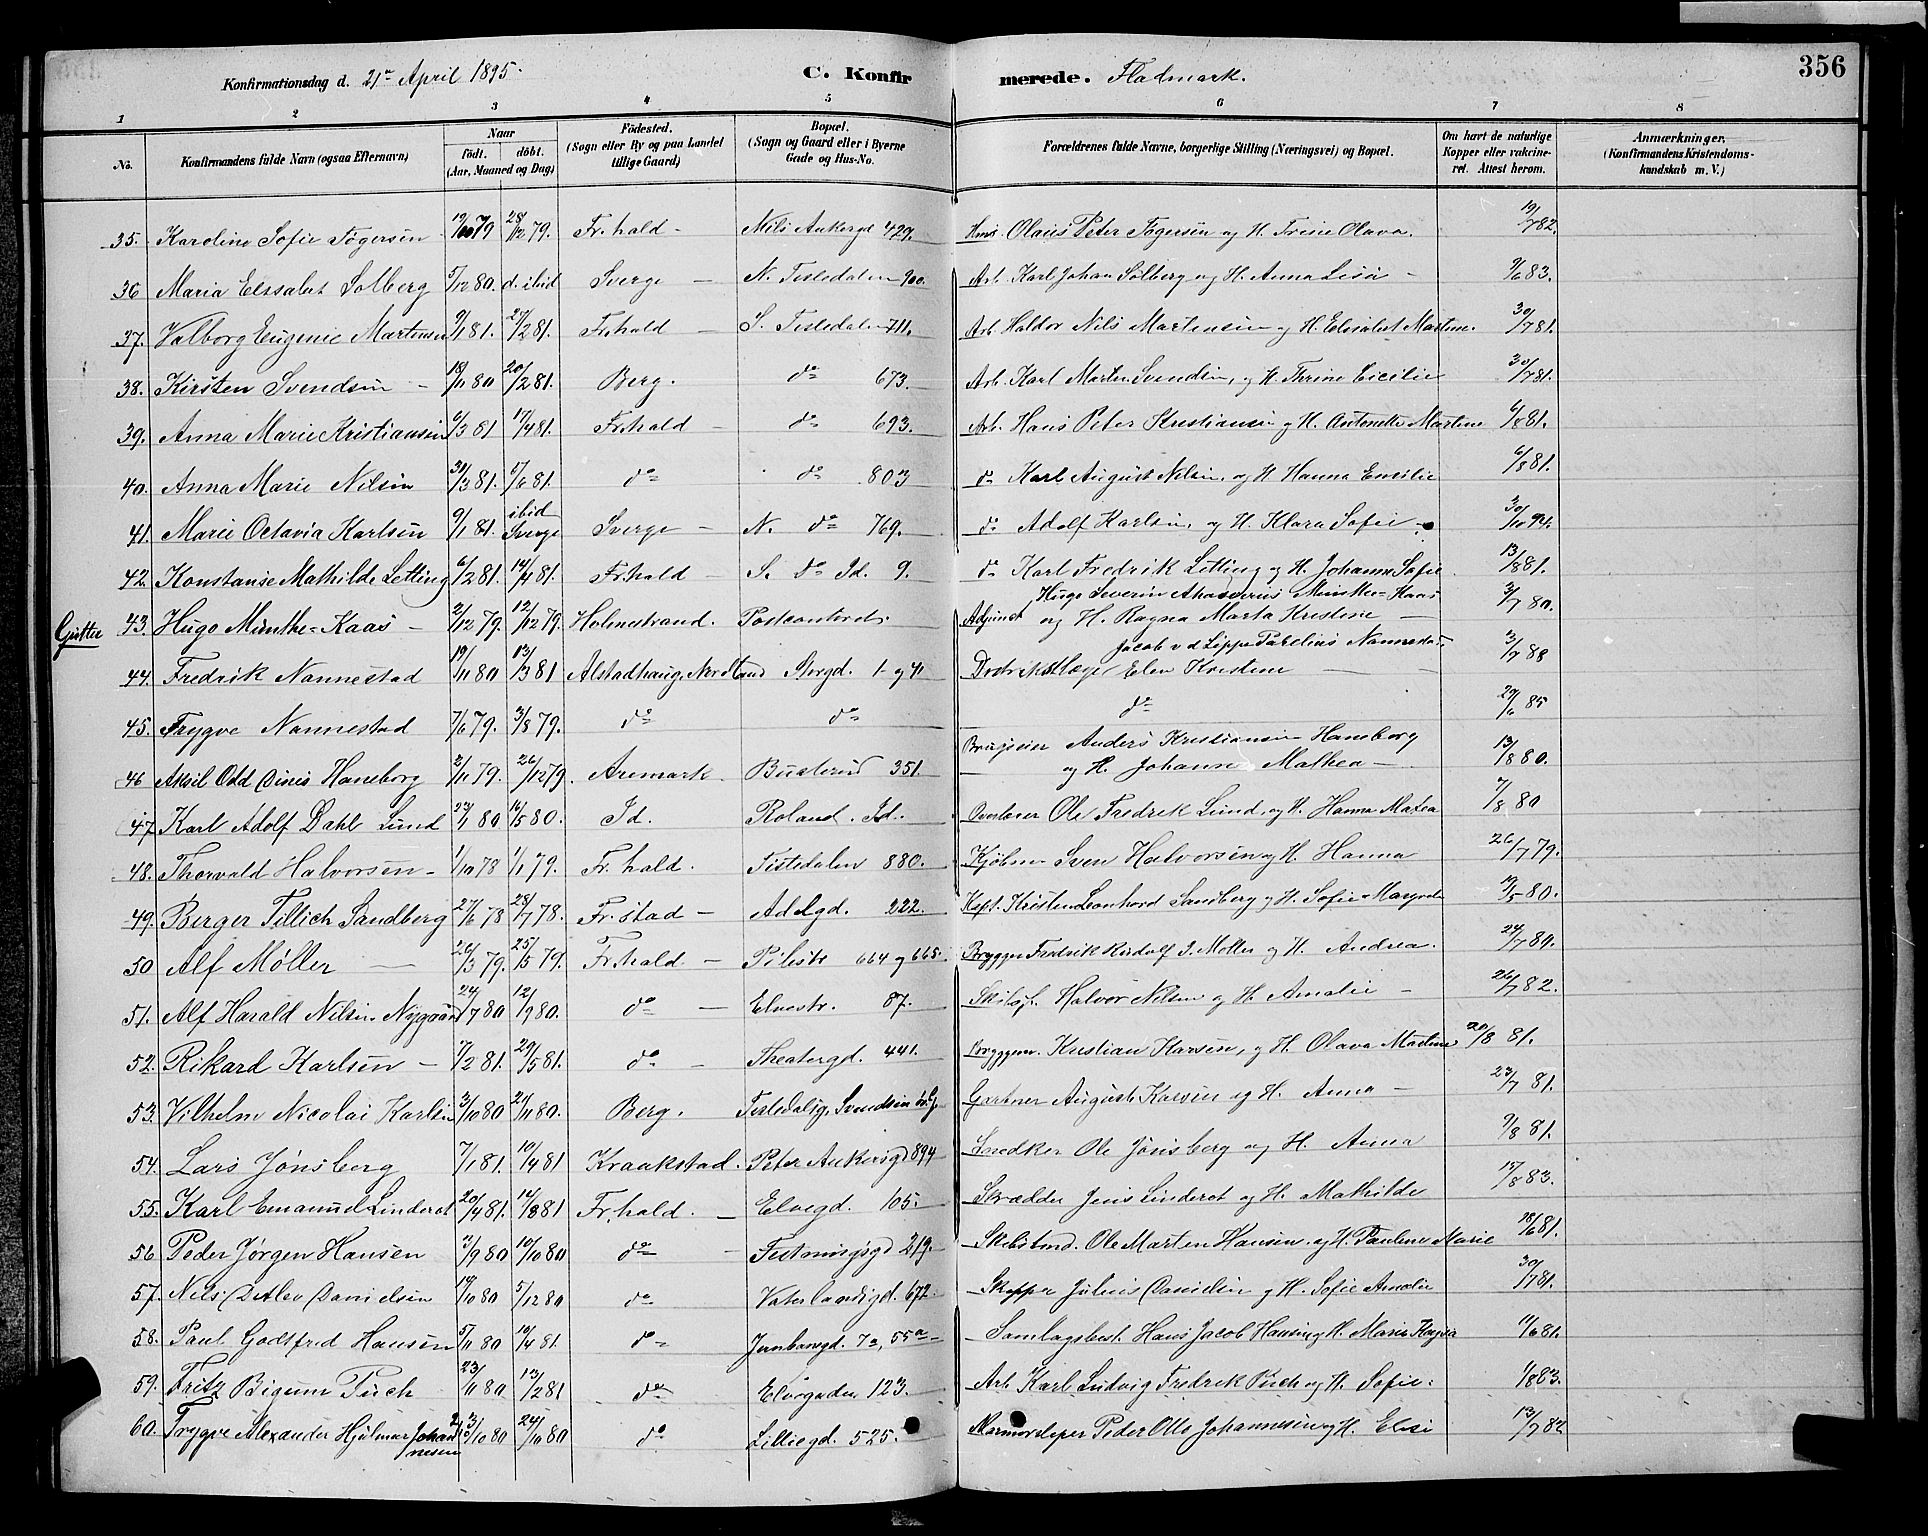 356
Konfirmationsdag d. 21de April 1895. C. Konfirmerede. Fladmark.
1 2 3 4 5 6 7 8
No. Konfirmandens fulde Navn (ogsaa Efternavn) Naar födt. döbt. (Aar, Maaned og Dag) Födested. (Sogn eller By og paa Landet tillige Gaard) Bopæl. (Sogn og Gaard eller i Byerne Gade og Hus-No. Forældrenes fulde Navne, borgerlige Stilling (Næringsvei) og Bopæl. Om havt de naturlige Kopper eller vakcineret. Attest herom. Anmærkninger, (Konfirmandens Kristendomskundskab m. V.)
35. Karoline Sofie Togersen 19/10 79 28/12 79. Fr.hald - Nils Ankergd 429. Olaus Peter Togersen og H. Trine Olava. 19/7 82.
36 Maria Elisabet Solberg 5/12 80. d. ibid Sverge - N. Tistedalen 900. Arb. Karl Johan Solberg og H. Anna Lisa - 9/6 83.
37. Valborg Eugenie Martensen 9/1 81. 27/2 81. Fr.hald - S. Tistedalen 711. Arb. Haldor Nils Martensen og H. Elisabet Martine. 30/7 81.
38. Kirsten Svendsen - 18/11 80 20/2 81. Berg. do 673. Arb. Karl Martin Svendsen, og H. Thrine Cicilie 30/7 81.
39. Anna Marie Kristiansen 6/3 81 17/4 81. Fr.hald - do 693. Arb. Hans Peter Kristiansen og H. Antonette Martine 6/8 81.
40. Anna Marie Nilsen 30/3 81. 5/6 81. do do 803 do Karl August Nilsen, og H. Hanna Emilie 6/8 81.
41. Marie Octavia Karlsen 9/1 81. ibid Sverge Sverge - N. do 769. do Adolf Karlsen, og H. Klara Sofie - 30/10 94.
42. Konstanse Mathilde Letting 6/2 81. 14/4 81. Fr.hald - S. do Id. 9. do Karl Fredrik Letting og H. Johanna Sofie 13/8 81.
Gutter 43. Hugo Munthe-Kaas - 2/12 79. 12/12 79. Holmestrand. Postcontoret. Adjunct Hugo Severin Ahasverus Munthe-Kaas og H. Ragna Marta Kristine - 3/7 80.
44. Fredrik Nannestad 19/11 80 13/3 81 Alstadhaug, Nordland Storgd. 1 og 4 Distriktslæge Jacob v d Lippe Parelius Nannestad Elen Kristine - 3/7 88
45. Trygve Nannestad 7/6 79. 3/8 79. do do do 29/6 85
46 Aksil Odd Dinis Haneborg 2/11 79. 26/12 79. Aremark. Busterud 351. Brugseier Anders Kristiansen Haneborg og H. Johanne Mathea - 13/8 80.
47 Karl Adolf Dahl Lund 27/1 80 16/5 80. Id. Roland. Id. Ole Fredrik Lund, og H. Hanna Matea 7/8 80
48. Thorvald Halvorsen - 1/10 78 1/1 79. Fr.hald. Tistedalen 880. Kjøbm. Sven Halvorsen og H. Hanna 26/7 79.
49. Berger Tillich Sandberg 27/6 78 28/7 78. Fr.stad - Adelgd. 222. Kapt. Kristen Leonhard Sandberg og H. Sofie Margrete 19/5 80.
50 Alf Møller - 26/3 79. 25/5 79. Fr.hald. - Pilestr 664 og 665. Brygger Fredrik Rudolf J. Møller og H. Andrea. 24/7 80.
51. Alf Harald Nilsen Nygaard 24/7 80 12/9 80. do - Elvestr. 87. Halvor Nilsen og H. Amalie - 26/7 82.
52. Rikard Karlsen - 7/2 81. 29/5 81. do - Theatergd. 441. Bryggem. Kristian Karsen, og H. Olava Martine 20/8 81.
53. Vilhelm Nicolai Karlsen 3/10 80 21/11 80. Berg. Gartner August Karsen og H. Anna - 23/7 81.
54. Lars Jønsberg 7/1 81. 10/4 81 Kraakstad. Peter Ankersgd 894 Snedker Ole Jønsberg og H. Anna 9/8 81.
55. Karl Emanuel Linderot 20/4 81. 14/8 81 Fr.hald. - Elvegd. 105. Skrædder Jens Linderot og H. Mathilde 15/8 83.
56 Peder Jørgen Hansen 3/9 80 10/10 80 do - Festningsgd 219. Ole Marten Hansen. og H. Pauline Marie 18/6 81.
57. Nils Ditlev Danielsen 19/10 80 5/12 80 do Vaterlandsgd. 672. Skipper Julius Danielsen og H. Sofie Amalie 30/7 81.
58. Paul Godtfred Hansen 5/11 80 10/4 81. do Jernbanegd. 7a, 55a Samlagsbest. Hans Jacob Hansen og H. Marie Kajsa 11/6 81.
59. Fritz Bigum Puch 23/11 80 13/2 81 do Elvegaden 123. Arb. Karl Ludvig Fredrik Puch og H. Sofie. 1/8 83.
60. Trygve Alexander Hjalmar Johannesen 3/10 80 24/10 80 do Lilliegd. 525. Marmorsliper Peder Otto Johannesen og H. Elise 13/7 82